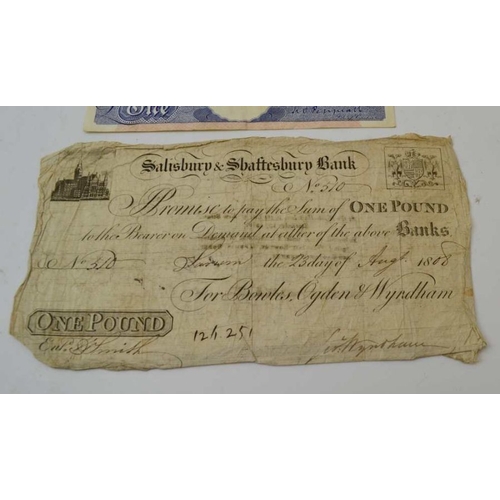 One
Salisbury & Shaftesbury Bank
No. 510
I Promise to pay the Sum of ONE POUND
to the Bearer on Demand at either of the above Banks
No. 510 the 23 day of Augt. 1808
For Bowles, Ogden & Wyndham
ONE POUND
126.251
Entd. Smith Wyndham